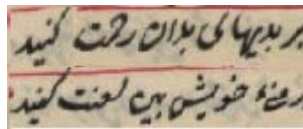 بر بدیهای بدان رحمت کنید
بر منی خویش بین لعنت کنید